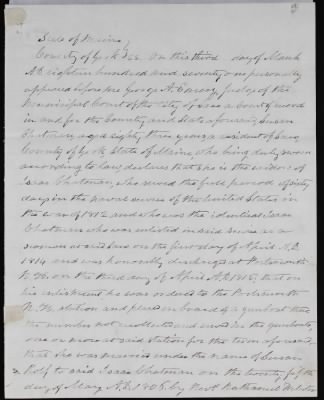 State of Maine,
County of York SS. On this third day of March
A.D. eighteen hundred and seventy one personally
appeared before me George A. Judge of the
Municipal Court of the City of a court of record
in and for the County and State aforesaid, Susan
Chatman aged eighty three years a resident of Saco
County of York State of Maine, who being duly sworn
according to law, declares that she is the widow of
Isaac Chatman, who served the full period of sixty
days in the naval service of the United States in
the war of 1812 and who was the identical Isaac
Chatman who was enlisted in said service as a
seaman at said Saco on the first day of April A.D.
1814 and was honorably discharged at Portsmouth
N.H. on the third day of April A.D. 1815; that on
his enlistment he was ordered to the Portsmouth
N.H. station and placed on board of a gunboat that
the number not recollected and served in the gunboats,
one or more at said station for the term aforesaid,
that she was married under the name of Susan
to said Isaac Chatman on the twenty
day of May A.D. 1808, by Revt Nathaniel Webster